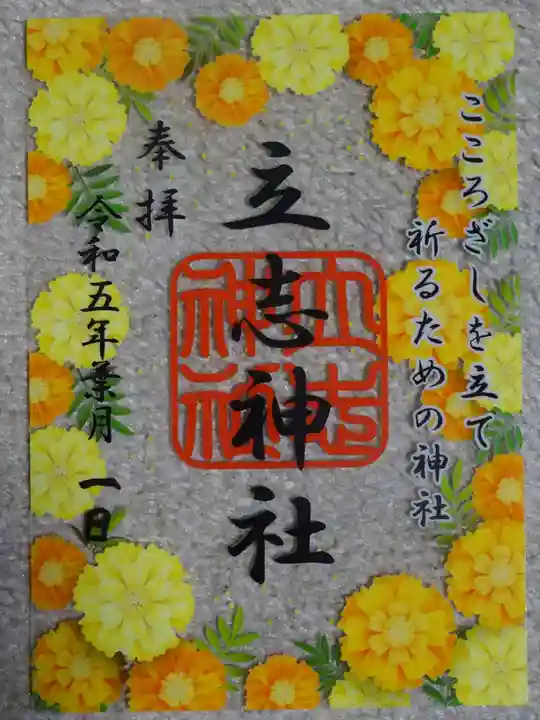 こころざしを立て
祈るための神社
立志神社
立志神社
奉拝
令和五年葉月 一日